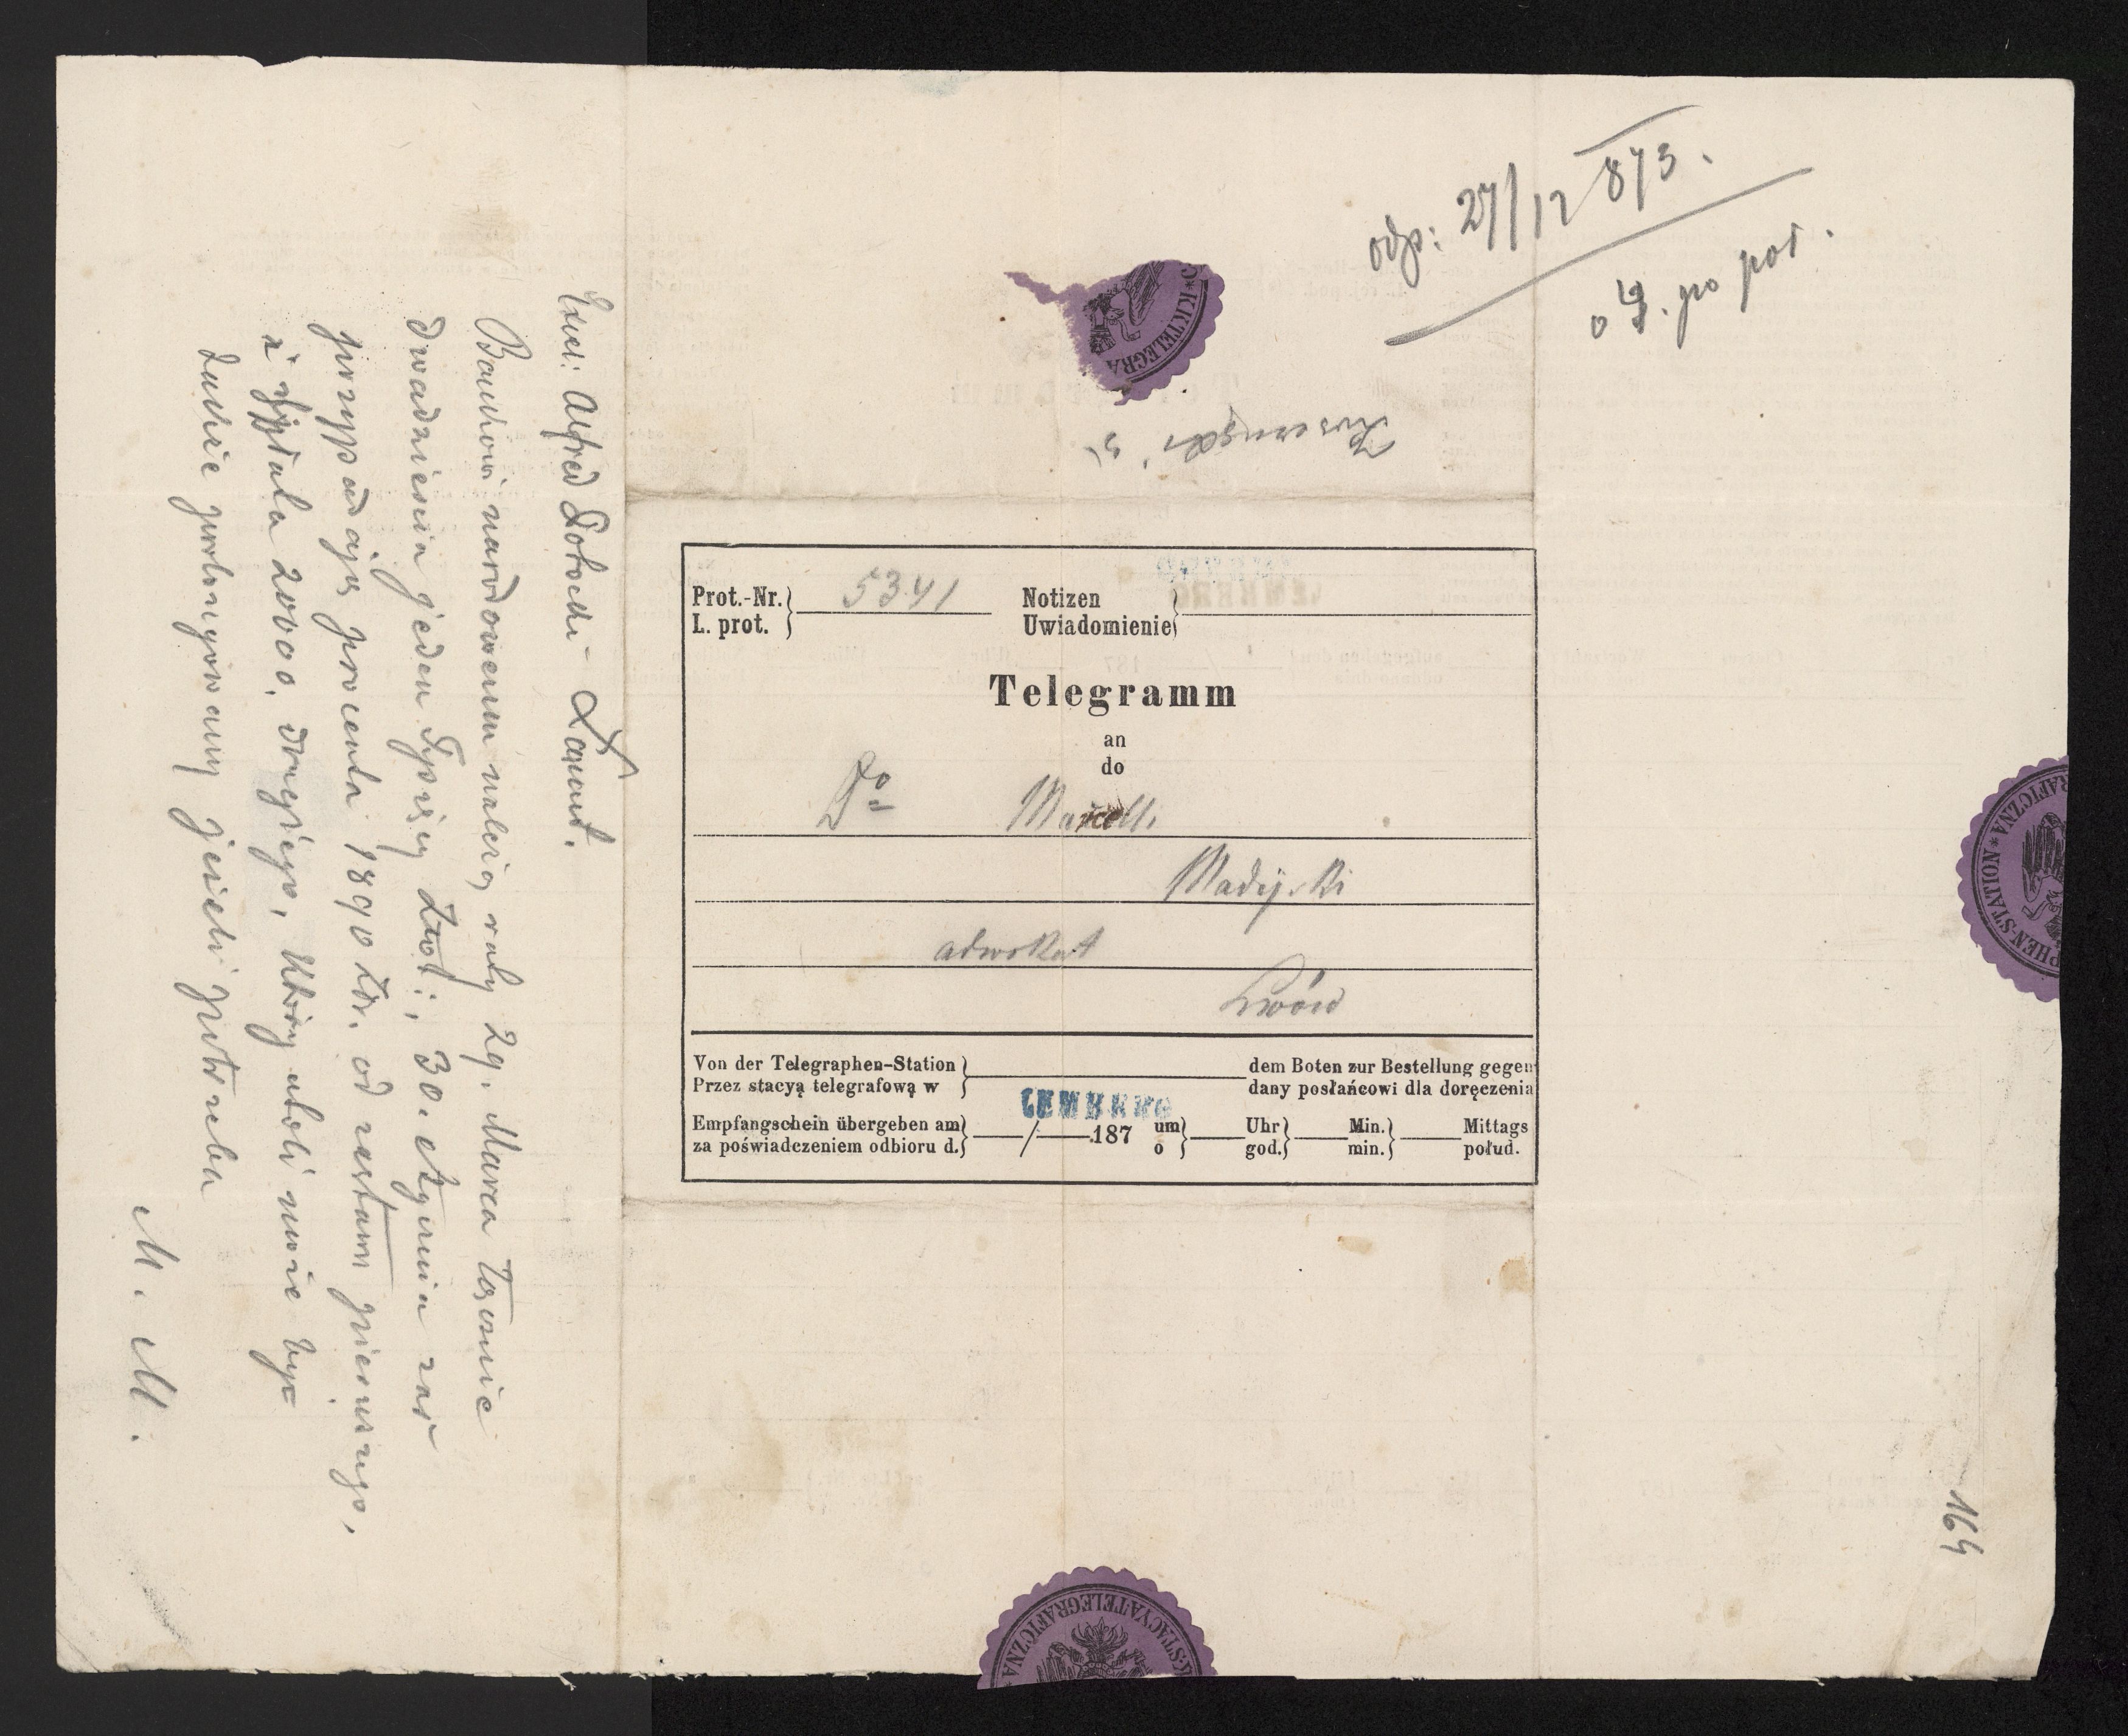 odp: 27/12 873.
o 4. po poł.
K. K. TELEGRA
Prot.-Nr. 5341 Notizen
L. prot. Uwiadomienie
Telegramm
an
do
Dr Marcelli
Madejski
adwokat
Lwów
Von der Telegraphen-Station dem Boten zur Bestellung gegen
Przez stacyą telegrafową w dany posłańcowi dla doręczenia
LEMBERG
Empfangschein übergeben am / 187 um Uhr Min. Mittags
za poświadczeniem odbioru d. o god. min. połud.
Excel: Alfred Potocki – Łańcut.
Bankowi narodowemu należą raty 29. Marca łącznie
dwadzieścia jeden tysięcy złot:, 30. stycznia zaś
przypadają procenta 1890 złr. od restam pierwszego,
i spłata 20000. drugiego, który atoli może być
także prolongowany jeżeli potrzeba
M. M.
PHEN-STATION * RAFICZNA *
STACYA TELEGRAFICZNA
164